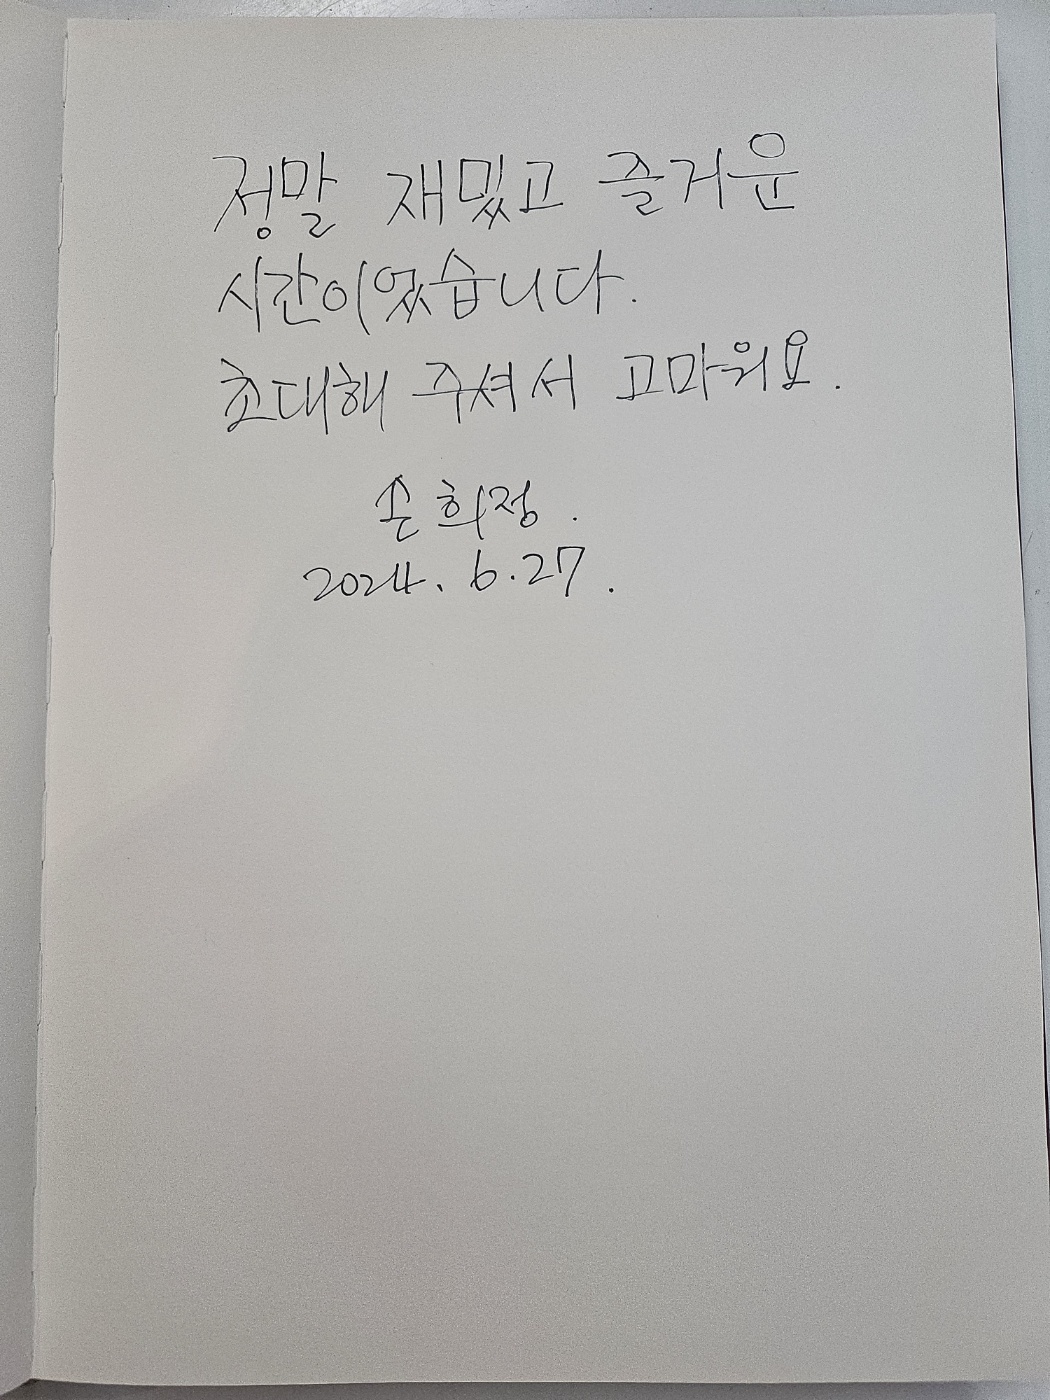 정말 재밌고 즐거운
시간이었습니다.
초대해 주셔서 고마워요.
손희정.
2024. 6.27.